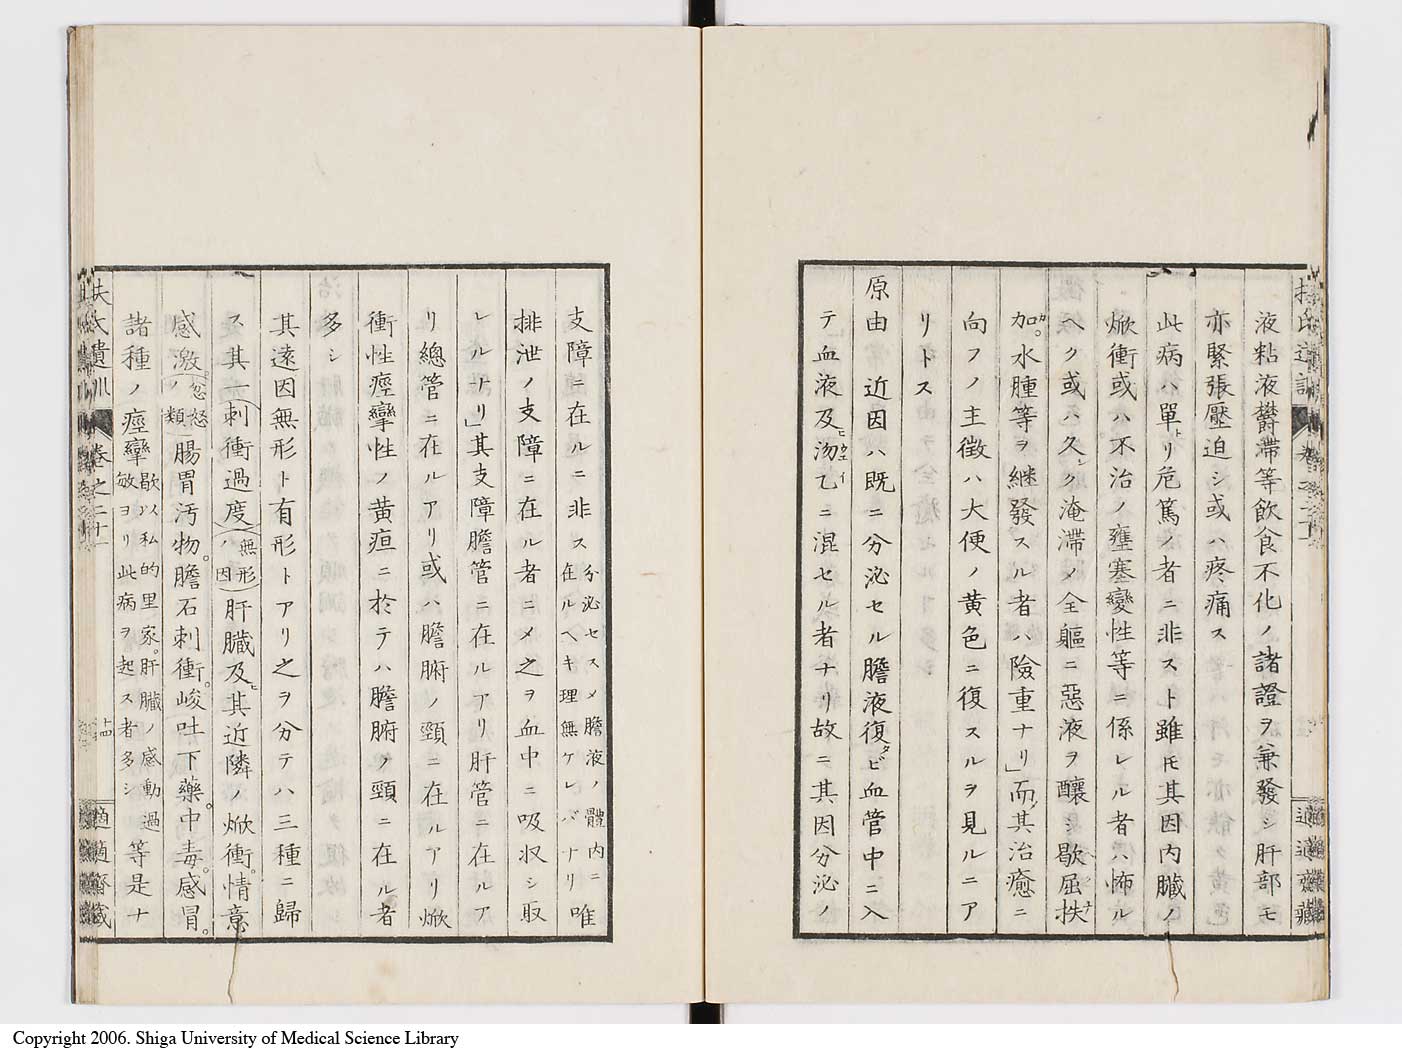 液粘液欝滯等飲食不化ノ諸證ヲ兼發シ肝部モ
亦緊張壓迫シ或ハ疼痛ス
此病ハ單リ危篤ノ者ニ非スト雖𪜈其因内臓ノ
焮衝或ハ不治ノ壅塞變性等ニ係レル者ハ怖ル
ヘク或ハ久シク淹滯メ全軀ニ惡液ヲ釀シ歇屈扶
加。水腫等ヲ繼發スル者ハ險重ナリ」而メ其治癒ニ
向フノ主徵ハ大便ノ黄色ニ復スルヲ見ルニア
リトス
原由 近因ハ既ニ分泌セル膽液復タビ血管中ニ入
テ血液及ヒ沕乙ニ混セル者ナリ故ニ其因分泌ノ
適適齋藏
支障ニ在ルニ非ス分泌セスメ膽液ノ體内ニ在ルヘキ理無ケレバナリ唯
排泄ノ支障ニ在ル者ニメ之ヲ血中ニ吸収シ取
レルナリ」其支障膽管ニ在ルアリ肝管ニ在ルア
リ總管ニ在ルアリ或ハ膽腑ノ頸ニ在ルアリ焮
衝性痙攣性ノ黄疸ニ於テハ膽腑ノ頸ニ在ル者
多シ
其遠因無形ト有形トアリ之ヲ分テハ三種ニ歸
ス其一刺衝過度(無形ノ因)肝臓及ヒ其近隣ノ焮衝。情意
感激(忿怒ノ類)腸胃汚物。膽石刺衝。峻吐下藥。中毒。感冒。
諸種ノ痙攣歇以私的里家。肝臓ノ感動過敏ヨリ此病ヲ起ス者多シ等是ナ
扶氏遺訓 卷之二十一 十四 適適齋藏